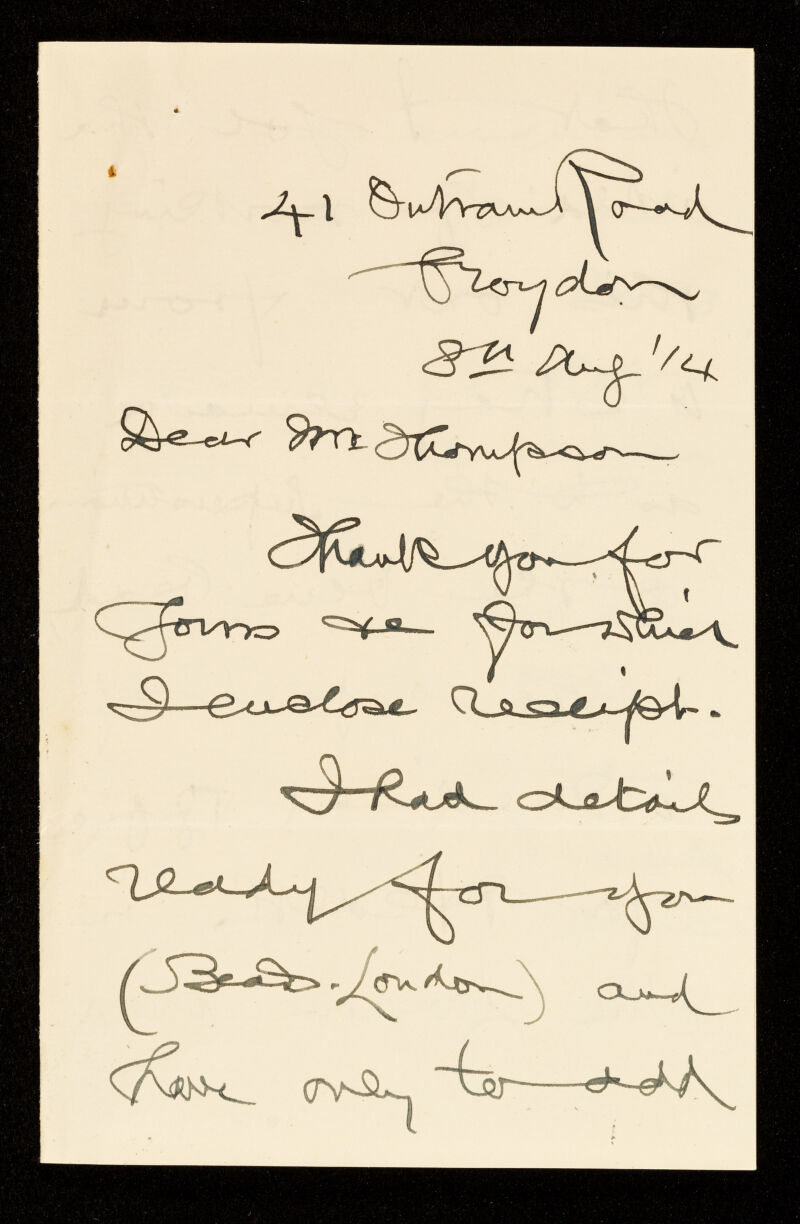 41 Outram Road
Croydon
8th Aug '14
Dear Mr Thompson
Thank you for
Yours &c for which
I enclose receipt.
I had details
ready for you
(Beads. London) and
have only to add